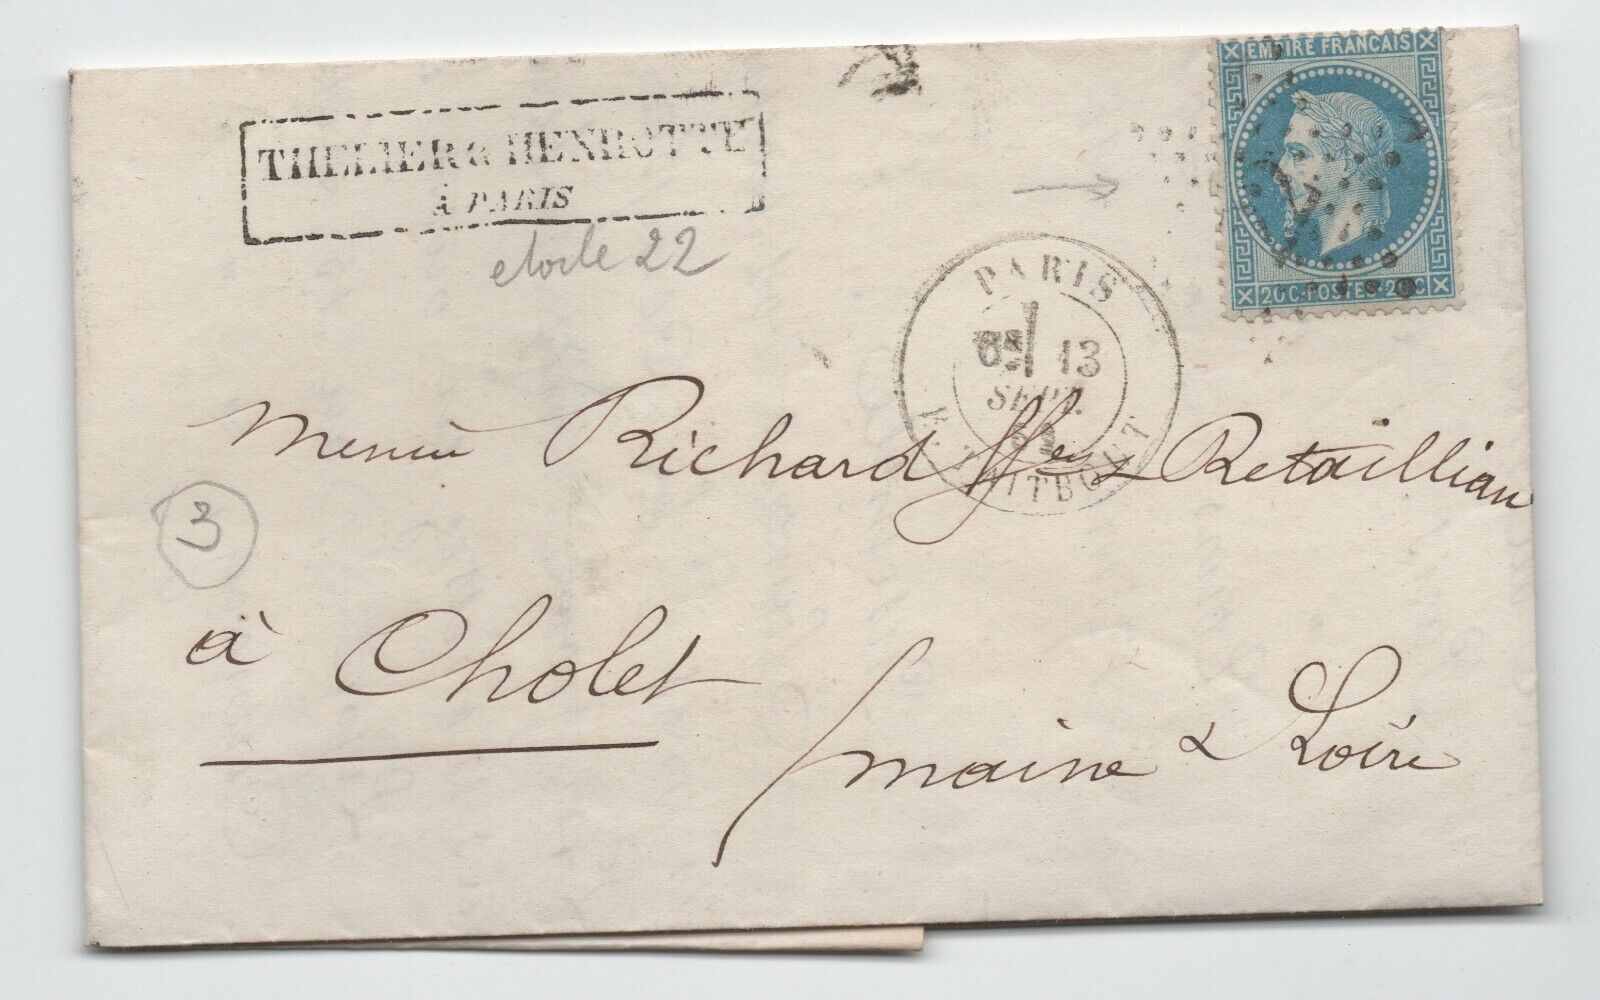 THELIER & HENROTTE
À PARIS
etoile 22
EMPIRE FRANCAIS
20 C · POSTES · 20 C
PARIS
13
SEPT.
R. TAITBOUT
Richard ffes & Retaillian
3
à Cholet
maine & Loire